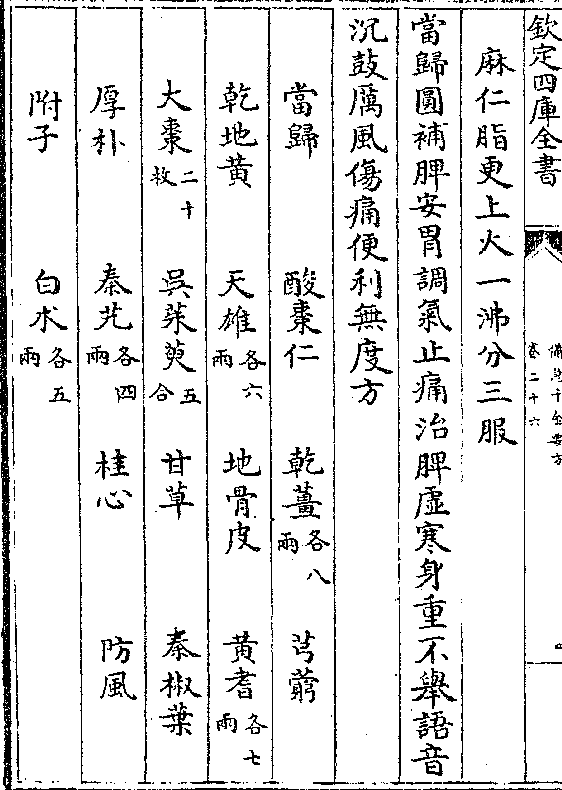 欽定四庫全書
備急千金要方
卷二十六
麻仁脂更上火一沸分三服
當歸圓補脾安胃調氣止痛治脾虛寒身重不舉語音
沉鼓厲風傷痛便利無度方
當歸 酸棗仁 乾薑各八兩 芎藭
乾地黃 天雄各六兩 地骨皮 黃耆各七兩
大棗二十枚 吳茱萸五合 甘草 秦椒葉
厚朴 秦艽各四兩 桂心 防風
附子 白术各五兩